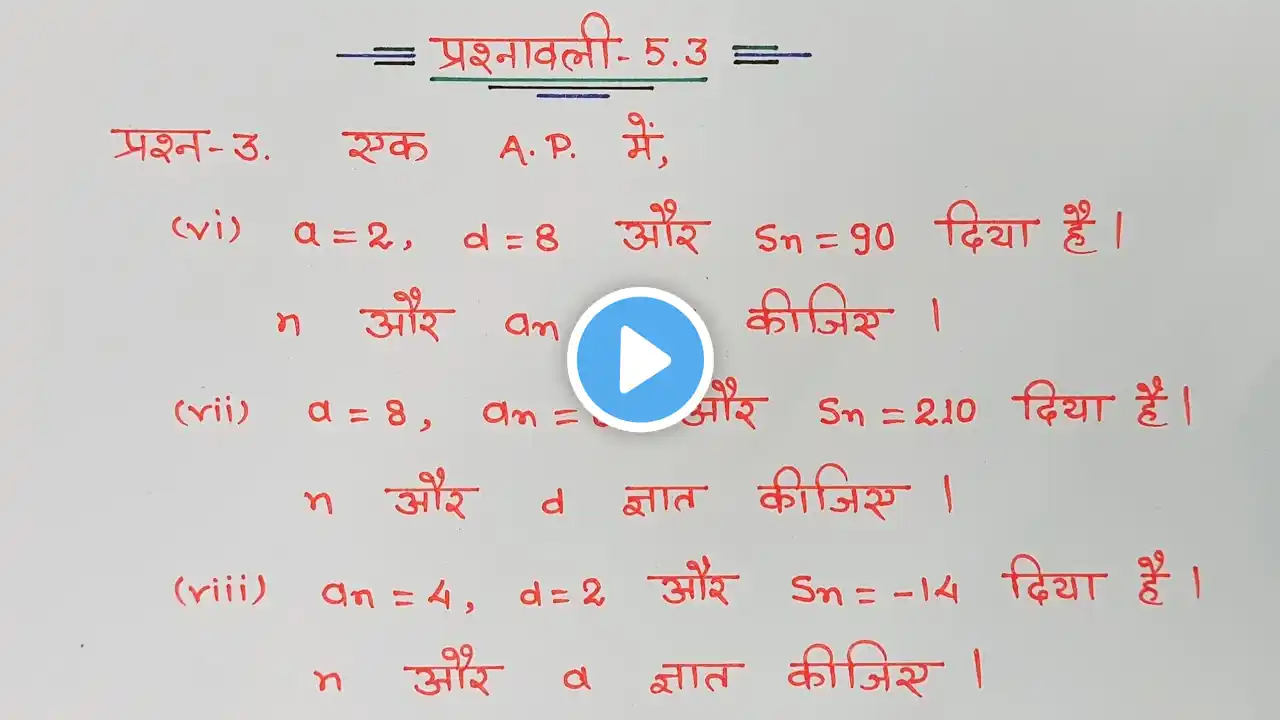 प्रश्नावली- 5.3
प्रश्न-3. एक A.P. में,
(vi) a = 2, d = 8 और Sn = 90 दिया है।
n और an कीजिए ।
(vii) a = 8, an = और Sn = 210 दिया है।
n और d ज्ञात कीजिए ।
(viii) an = 4, d = 2 और Sn = -14 दिया है।
n और a ज्ञात कीजिए ।